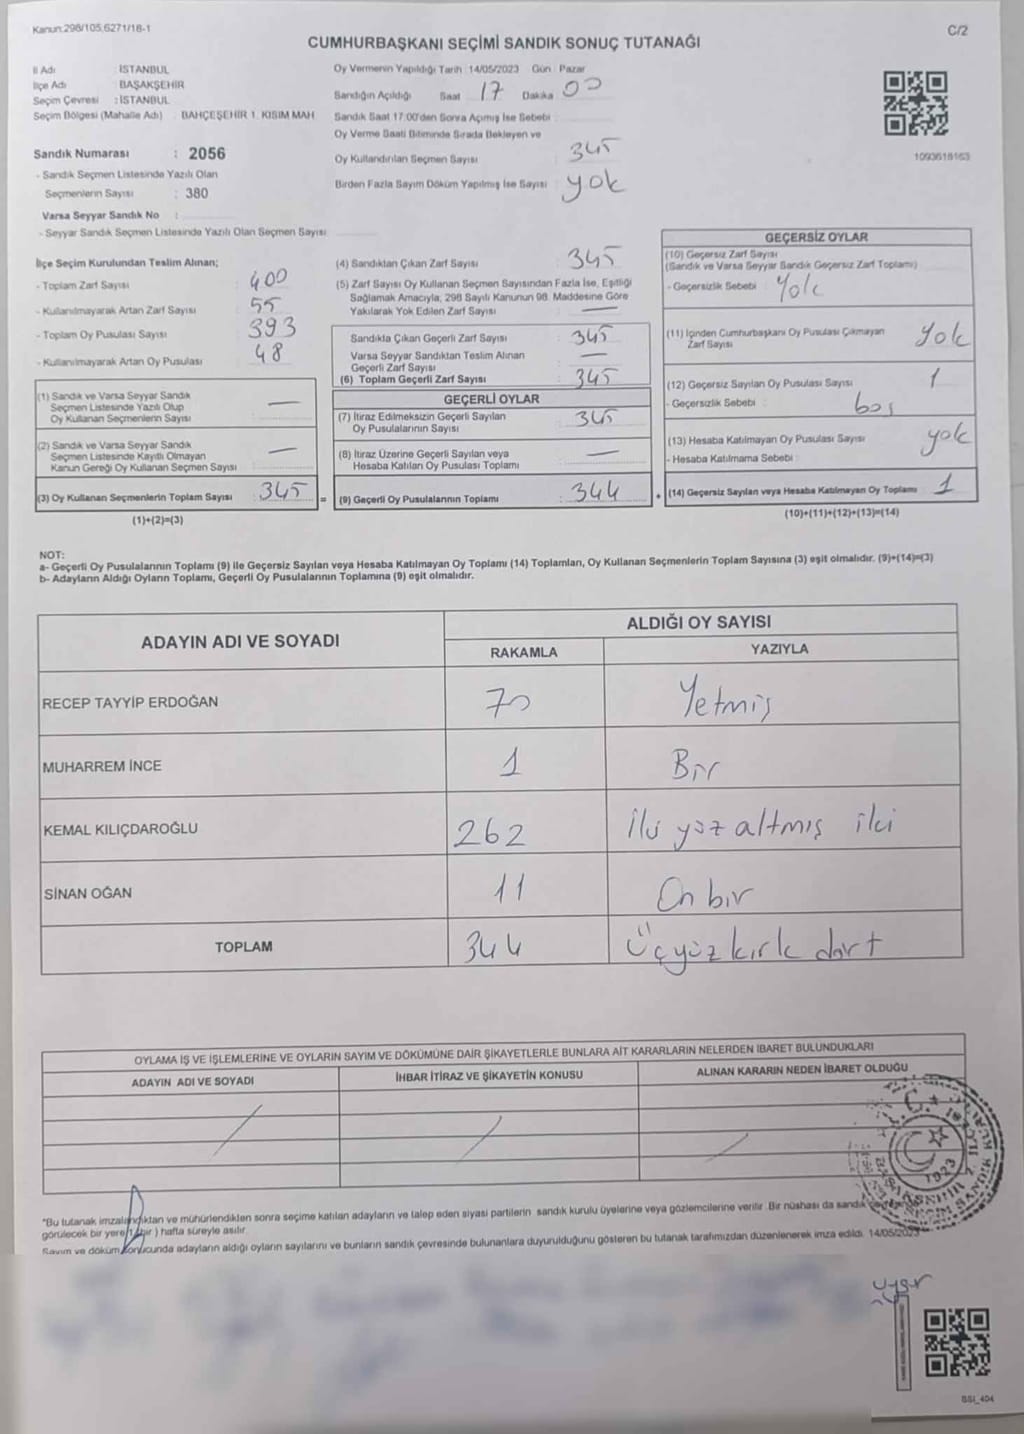 Kanun:298/105,6271/18-1
C/2
CUMHURBAŞKANI SEÇİMİ SANDIK SONUÇ TUTANAĞI
İl Adı : İSTANBUL
İlçe Adı : BAŞAKŞEHİR
Seçim Çevresi : İSTANBUL
Seçim Bölgesi (Mahalle Adı) : BAHÇEŞEHİR 1. KISIM MAH
Sandık Numarası : 2056
- Sandık Seçmen Listesinde Yazılı Olan
Seçmenlerin Sayısı : 380
Varsa Seyyar Sandık No :
- Seyyar Sandık Seçmen Listesinde Yazılı Olan Seçmen Sayısı
Oy Vermenin Yapıldığı Tarih : 14/05/2023 Gün : Pazar
Sandığın Açıldığı Saat : 17 Dakika : 00
Sandık Saat 17:00'den Sonra Açımış İse Sebebi :
Oy Verme Saati Bitiminde Sırada Bekleyen ve
Oy Kullandırılan Seçmen Sayısı : 345
Birden Fazla Sayım Döküm Yapılmış İse Sayısı : yok
1093618163
İlçe Seçim Kurulundan Teslim Alınan;
- Toplam Zarf Sayısı : 400
- Kullanılmayarak Artan Zarf Sayısı : 55
- Toplam Oy Pusulası Sayısı : 393
- Kullanılmayarak Artan Oy Pusulası : 48
(1) Sandık ve Varsa Seyyar Sandık
Seçmen Listesinde Yazılı Olup
Oy Kullanan Seçmenlerin Sayısı : —
(2) Sandık ve Varsa Seyyar Sandık
Seçmen Listesinde Kayıtlı Olmayan
Kanun Gereği Oy Kullanan Seçmen Sayısı : —
(3) Oy Kullanan Seçmenlerin Toplam Sayısı : 345 =
(1)+(2)=(3)
(4) Sandıktan Çıkan Zarf Sayısı : 345
(5) Zarf Sayısı Oy Kullanan Seçmen Sayısından Fazla İse, Eşitliği
Sağlamak Amacıyla, 298 Sayılı Kanunun 98. Maddesine Göre
Yakılarak Yok Edilen Zarf Sayısı : —
Sandıkta Çıkan Geçerli Zarf Sayısı : 345
Varsa Seyyar Sandıktan Teslim Alınan
Geçerli Zarf Sayısı : —
(6) Toplam Geçerli Zarf Sayısı : 345
GEÇERLİ OYLAR
(7) İtiraz Edilmeksizin Geçerli Sayılan
Oy Pusulalarının Sayısı : 345
(8) İtiraz Üzerine Geçerli Sayılan veya
Hesaba Katılan Oy Pusulası Toplamı : —
(9) Geçerli Oy Pusulalarının Toplamı : 344 +
GEÇERSİZ OYLAR
(10) Geçersiz Zarf Sayısı
(Sandık ve Varsa Seyyar Sandık Geçersiz Zarf Toplamı)
- Geçersizlik Sebebi : Yok
(11) İçinden Cumhurbaşkanı Oy Pusulası Çıkmayan
Zarf Sayısı : Yok
(12) Geçersiz Sayılan Oy Pusulası Sayısı : 1
- Geçersizlik Sebebi : boş
(13) Hesaba Katılmayan Oy Pusulası Sayısı : yok
- Hesaba Katılmama Sebebi :
(14) Geçersiz Sayılan veya Hesaba Katılmayan Oy Toplamı : 1
(10)+(11)+(12)+(13)=(14)
NOT:
a- Geçerli Oy Pusulalarının Toplamı (9) ile Geçersiz Sayılan veya Hesaba Katılmayan Oy Toplamı (14) Toplamları, Oy Kullanan Seçmenlerin Toplam Sayısına (3) eşit olmalıdır. (9)+(14)=(3)
b- Adayların Aldığı Oyların Toplamı, Geçerli Oy Pusulalarının Toplamına (9) eşit olmalıdır.
ADAYIN ADI VE SOYADI
ALDIĞI OY SAYISI
RAKAMLA YAZIYLA
RECEP TAYYİP ERDOĞAN 70 Yetmiş
MUHARREM İNCE 1 Bir
KEMAL KILIÇDAROĞLU 262 iki yüz altmış iki
SİNAN OĞAN 11 On bir
TOPLAM 344 Üçyüz kırk dört
OYLAMA İŞ VE İŞLEMLERİNE VE OYLARIN SAYIM VE DÖKÜMÜNE DAİR ŞİKAYETLERLE BUNLARA AİT KARARLARIN NELERDEN İBARET BULUNDUKLARI
ADAYIN ADI VE SOYADI İHBAR İTİRAZ VE ŞİKAYETİN KONUSU ALINAN KARARIN NEDEN İBARET OLDUĞU
"Bu tutanak imzalandıktan ve mühürlendikten sonra seçime katılan adayların ve talep eden siyasi partilerin sandık kurulu üyelerine veya gözlemcilerine verilir. Bir nüshası da sandık
görülecek bir yere (bir) hafta süreyle asılır.
Sayım ve döküm sonucunda adayların aldığı oyların sayılarını ve bunların sandık çevresinde bulunanlara duyurulduğunu gösteren bu tutanak tarafımızdan düzenlenerek imza edildi. 14/05/2023
1923
uyar
SSI_404